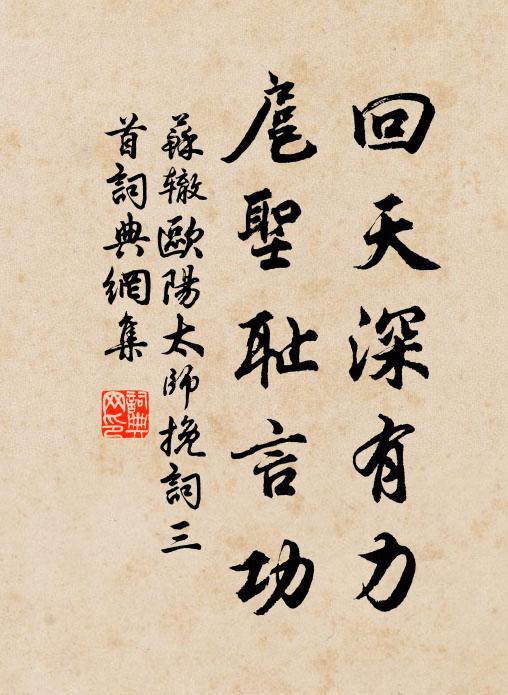 回天深有力
扈聖耻言功
蘇辙歐陽太師挽詞三
首詞典網集
詞典
网印